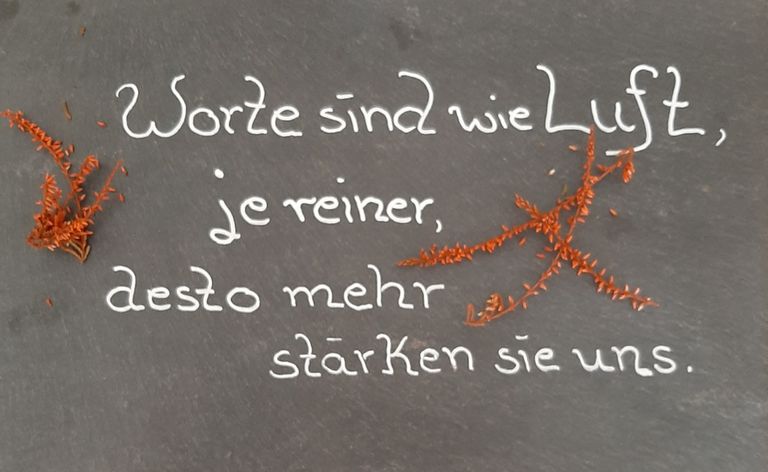 Worte sind wie Luft,
je reiner,
desto mehr
stärken sie uns.